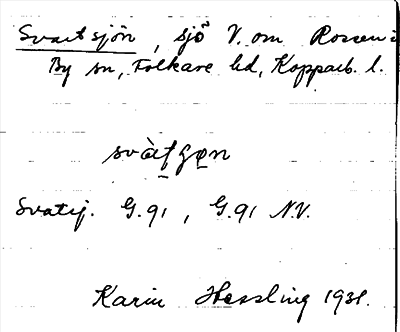 Svartsjön, sjö V. om Rossen i
By sn, Folkare hd, Kopparb. l.
Svartsj. G.91, G.91 NV.
Karin Hessling 1931.